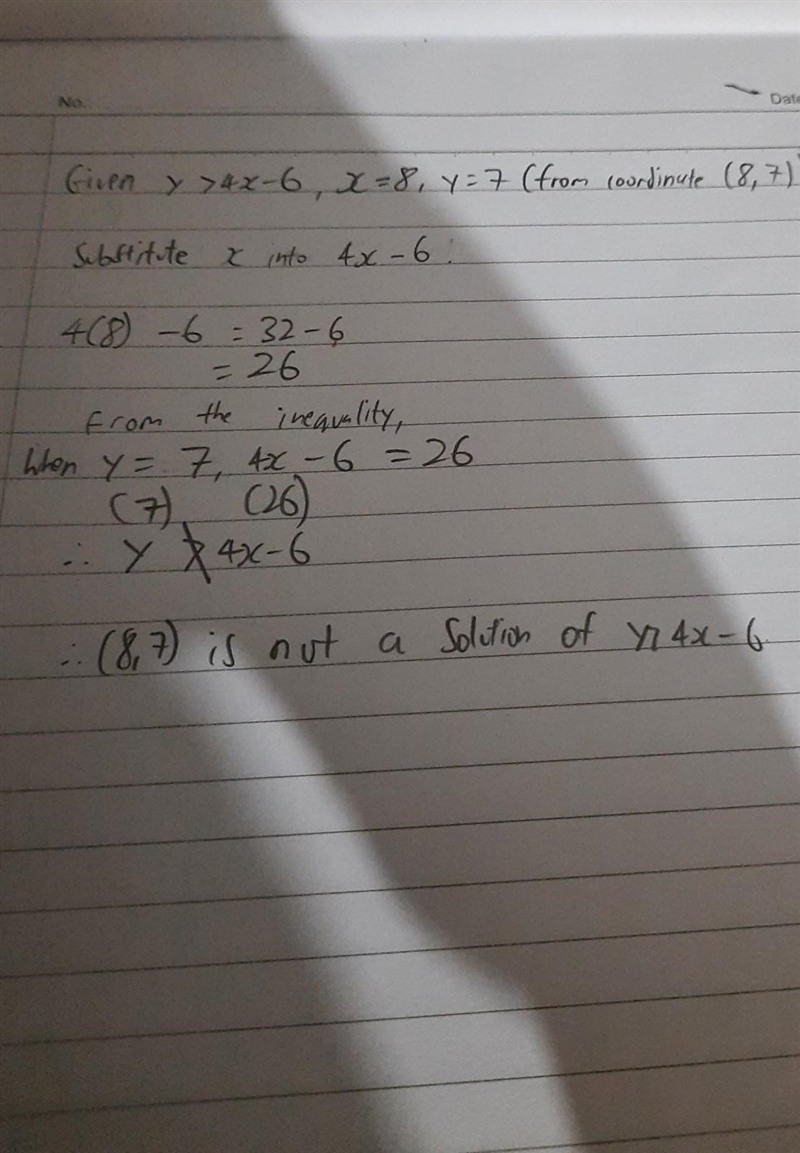 No.
Date
Given y > 4x - 6, x = 8, y = 7 (from coordinate (8,7)
Substitute x into 4x - 6:
4(8) - 6 = 32 - 6
= 26
From the inequality,
When y = 7, 4x - 6 = 26
(7) (26)
∴ y ≯ 4x - 6
∴ (8,7) is not a solution of y > 4x - 6